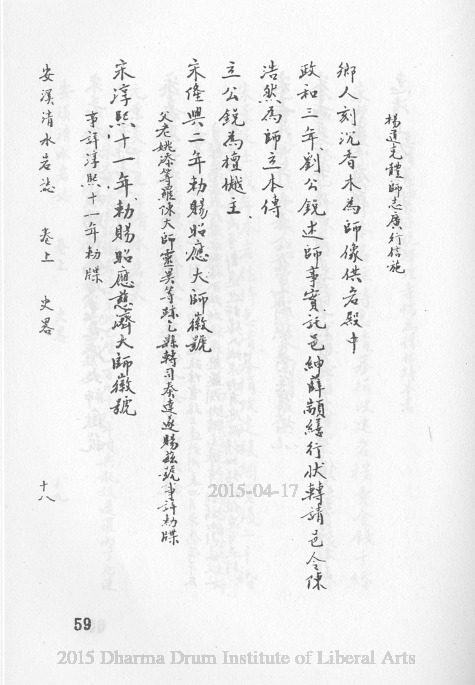 楊道克體師志廣行信施
鄉人刻沉香木為師像供岩殿中
政和三年劉公銳述師事實託邑紳薛巘繕行状轉請邑令陳
浩然為師立本傳
立公銳為檀樾主
宋隆興二年勅賜昭應大師徽號
父老姚添等羅陳大師靈異等跡之縣轉司奏達遂賜茲號事詳勅牒
宋淳熙十一年勅賜昭應慈濟大師徽號
事詳淳熙十一年勅牒
安溪清水岩誌 卷上 史畧 十八
2015-04-17
59
2015 Dharma Drum Institute of Liberal Arts